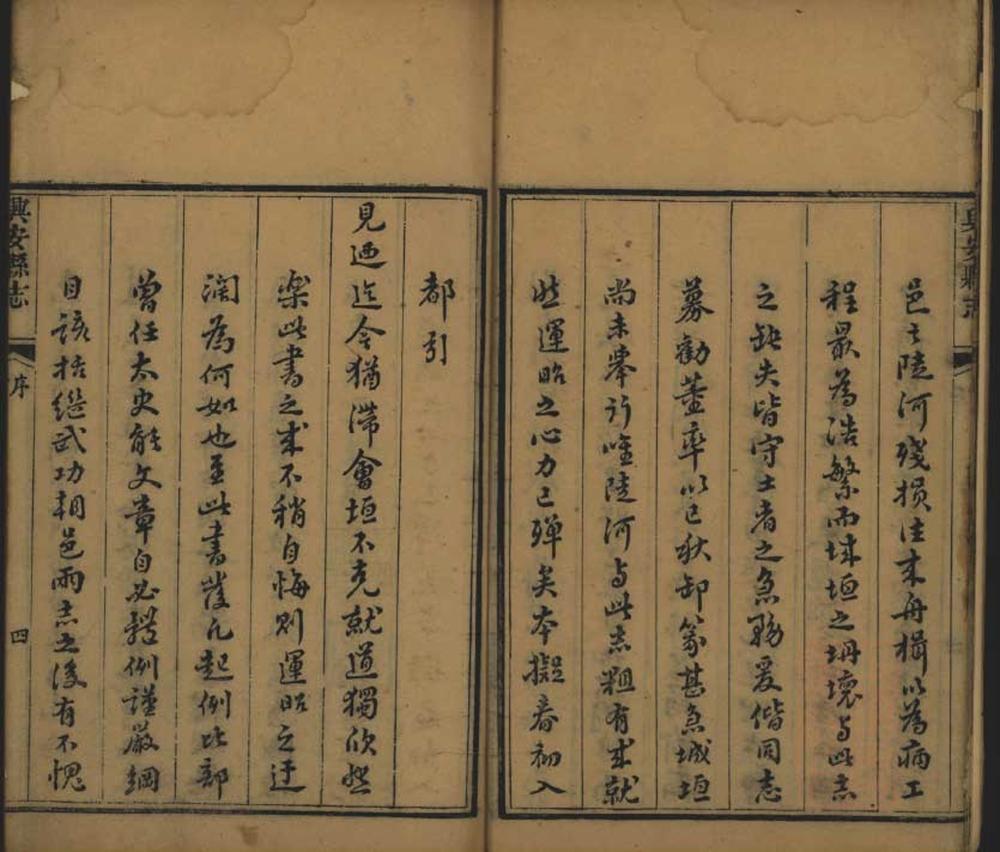 邑之陡河殘損往來舟楫以為病工
程最為浩繁而城垣之坍壞與此志
之缺失皆守土者之急務爰偕同志
募勸董率以已秋卸篆甚急城垣
尚未舉行唯陡河與此志粗有成就
然運昭之心力已殫矣本擬春初入
都引
見迺迄今猶滯會垣不克就道獨欣然
樂此書之成不稍自悔則運昭之迂
濶為何如也至此書發凡起例比部
曾任太史能文章自必體例謹嚴綱
目該括繼武功朝邑兩志之後有不愧
興安縣志
序
四
興安縣志